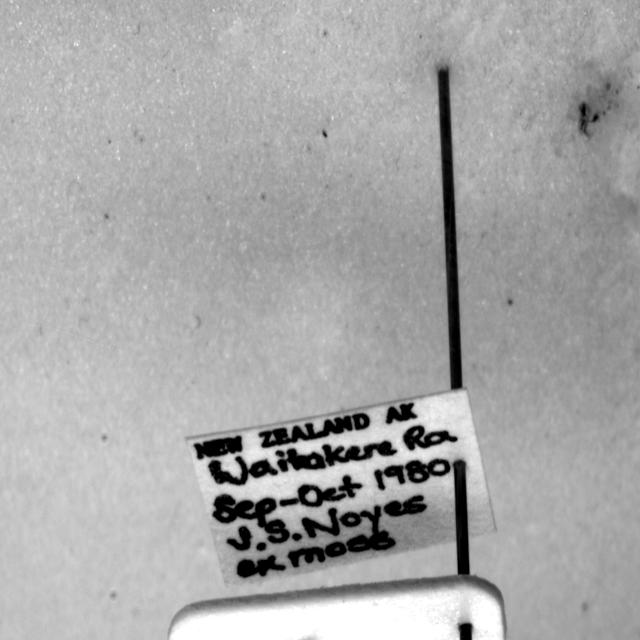 NEW ZEALAND AK
Waitakere Ra
Sep-Oct 1980
J.S. Noyes
ex. moss